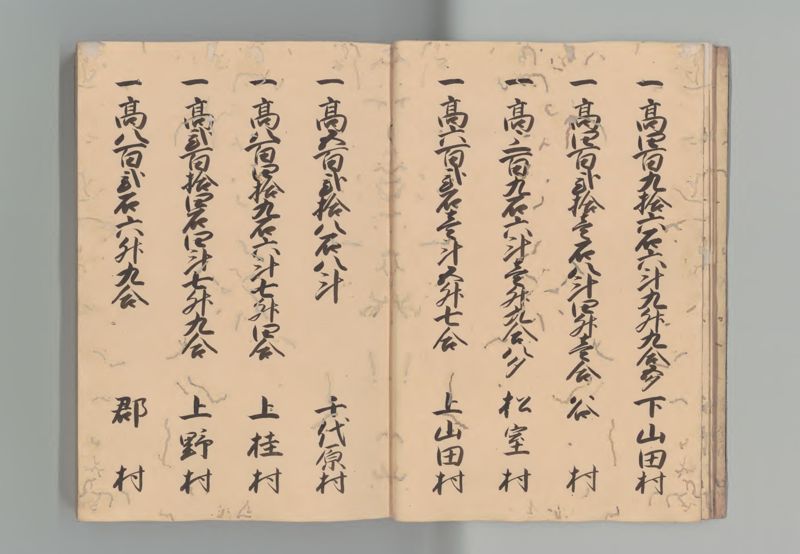 一高四百九拾六石六斗九升九合五夕 下山田村
一高四百弐拾壱石八斗四升壱合 谷村
一高三百九石六斗壱升九合八夕 松室村
一高六百弐石壱斗五升七合 上山田村
一高五百弐拾八石八斗 千代原村
一高八百四拾九石六斗七升四合 上桂村
一高弐百拾四石四斗七升九合 上野村
一高八百弐石六升九合 郡村